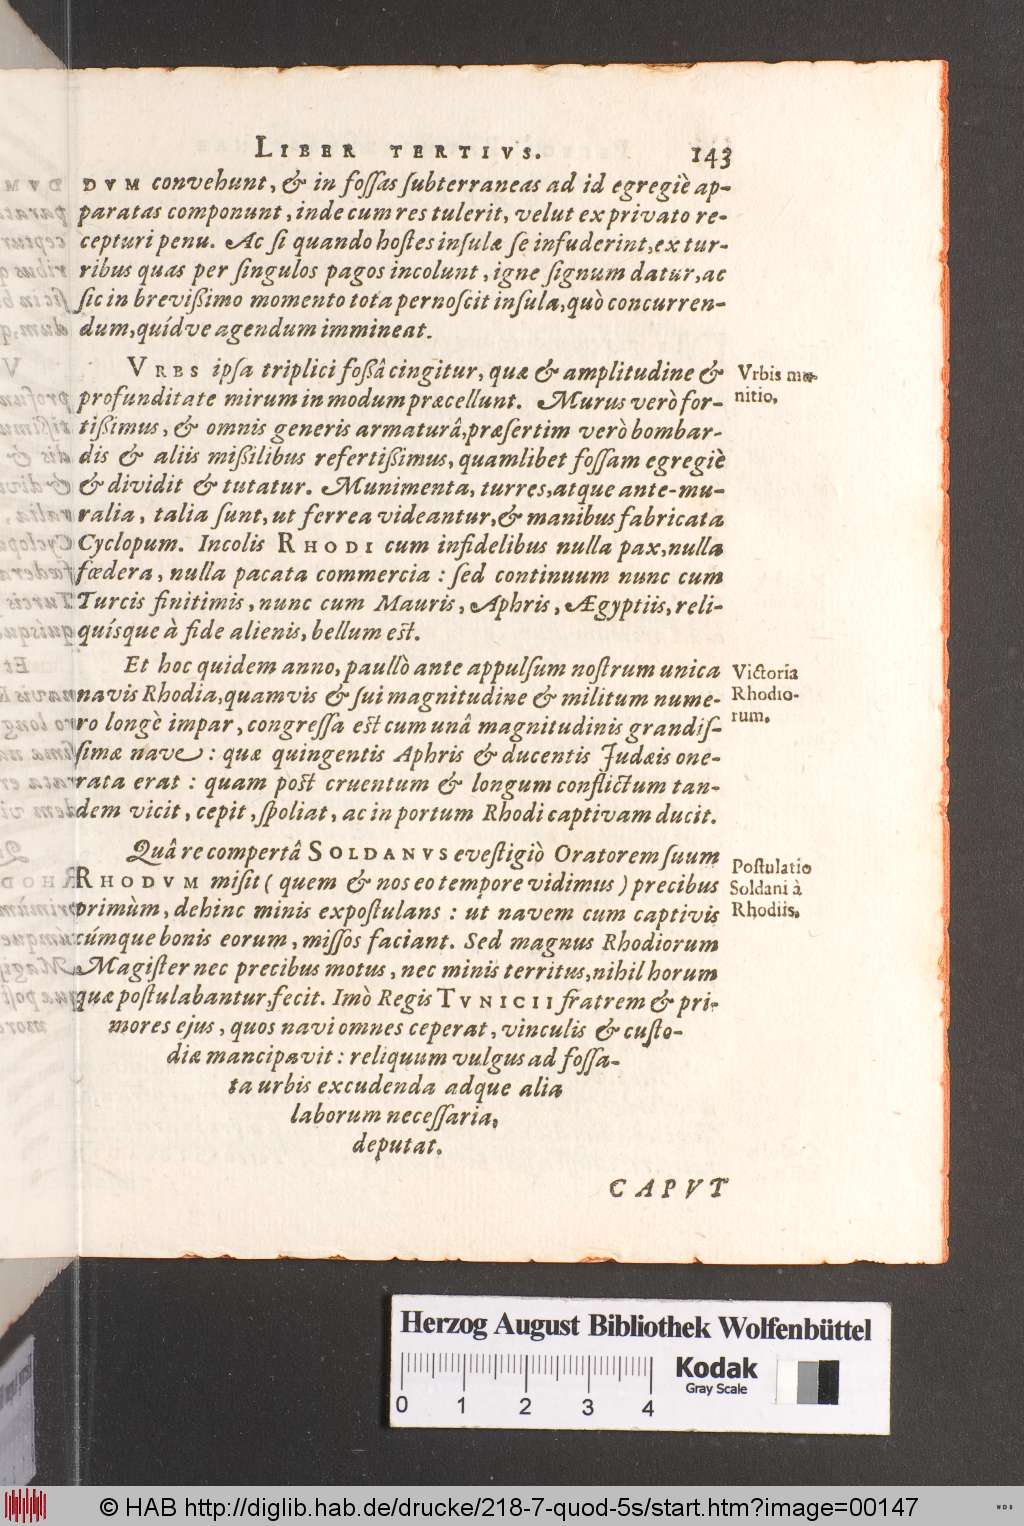 LIBER TERTIVS. 143
DVM convehunt, & in fossas subterraneas ad id egregiè ap-
paratas componunt, inde cum res tulerit, velut ex privato re-
cepturi penu. Ac si quando hostes insulæ se infuderint, ex tur-
ribus quas per singulos pagos incolunt, igne signum datur, ac
sic in brevißimo momento tota pernoscit insula, quò concurren-
dum, quídve agendum immineat.
VRBS ipsa triplici foßâ cingitur, quæ & amplitudine &
profunditate mirum in modum præcellunt. Murus verò for-
tißimus, & omnis generis armaturâ, præsertim verò bombar-
dis & aliis mißilibus refertißimus, quamlibet fossam egregiè
& dividit & tutatur. Munimenta, turres, atque ante-mu-
ralia, talia sunt, ut ferrea videantur, & manibus fabricata
Cyclopum. Incolis RHODI cum infidelibus nulla pax, nulla
fœdera, nulla pacata commercia : sed continuum nunc cum
Turcis finitimis, nunc cum Mauris, Aphris, Ægyptiis, reli-
quísque à fide alienis, bellum est.
Vrbis mu-
nitio.
Et hoc quidem anno, paullò ante appulsum nostrum unica
navis Rhodia, quamvis & sui magnitudine & militum nume-
ro longè impar, congressa est cum unâ magnitudinis grandis-
simæ nave : quæ quingentis Aphris & ducentis Judæis one-
rata erat : quam post cruentum & longum conflictum tan-
dem vicit, cepit, spoliat, ac in portum Rhodi captivam ducit.
Victoria
Rhodio-
rum.
Quâ re compertâ SOLDANVS evestigiò Oratorem suum
RHODVM misit ( quem & nos eo tempore vidimus ) precibus
primùm, dehinc minis expostulans : ut navem cum captivis
cúmque bonis eorum, missos faciant. Sed magnus Rhodiorum
Magister nec precibus motus, nec minis territus, nihil horum
quæ postulabantur, fecit. Imò Regis TVNICII fratrem & pri-
mores ejus, quos navi omnes ceperat, vinculis & custo-
diæ mancipavit : reliquum vulgus ad fossa-
ta urbis excudenda adque alia
laborum necessaria,
deputat.
Postulatio
Soldani à
Rhodiis.
CAPVT
Herzog August Bibliothek Wolfenbüttel
0 1 2 3 4
Kodak
Gray Scale
© HAB http://diglib.hab.de/drucke/218-7-quod-5s/start.htm?image=00147